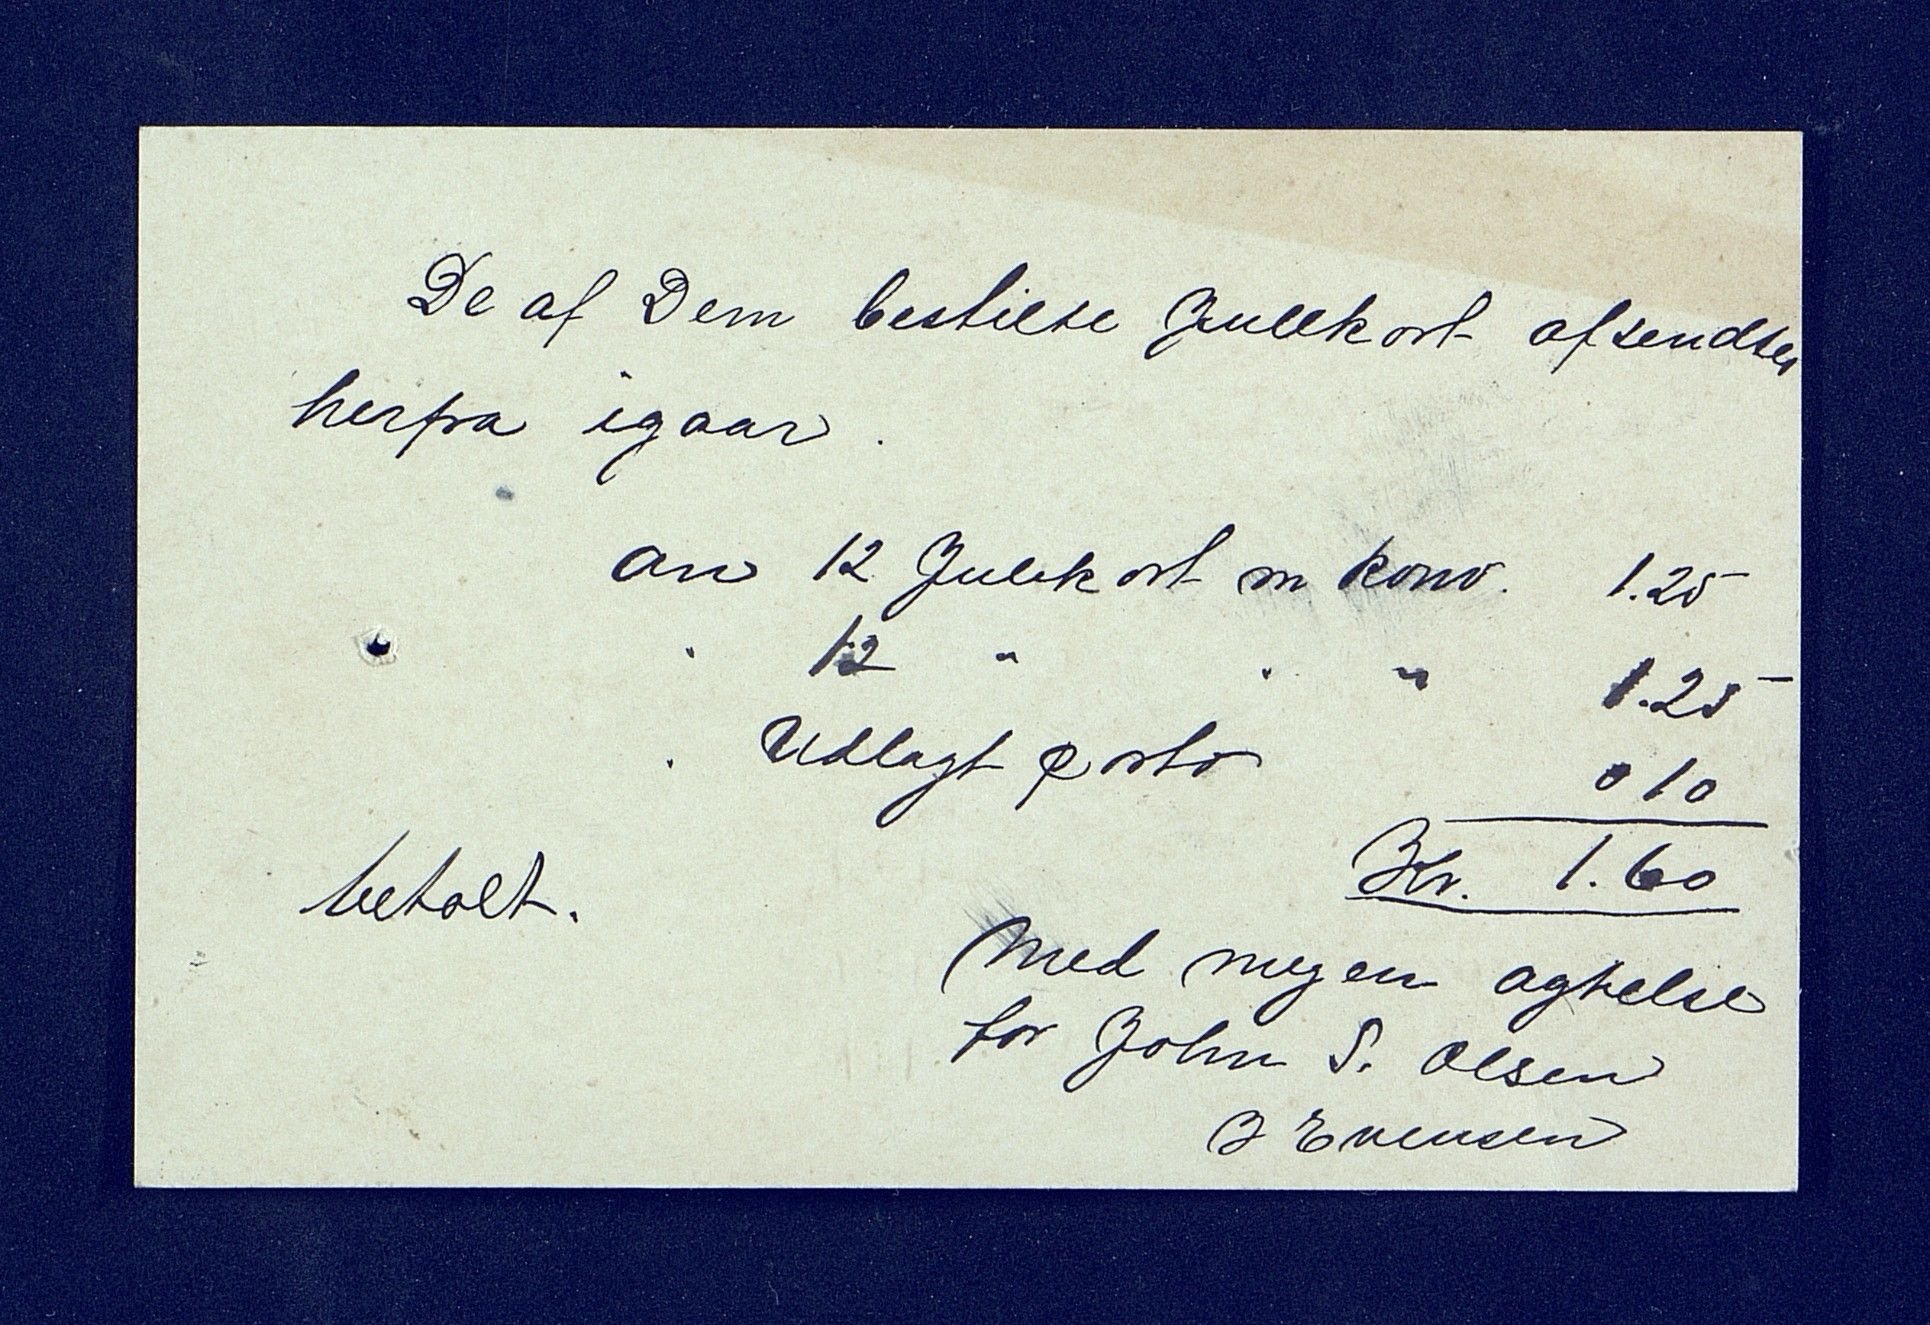 De af Dem bestilte Julekort afsendtes
herfra igaar.
an 12 Julekort m konv. 1.25
" 12 " " " 1.25
" Udlagt porto 0 10
Kr. 1.60
betalt.
Med megen agtelse
for John S. Olsen
J Evensen